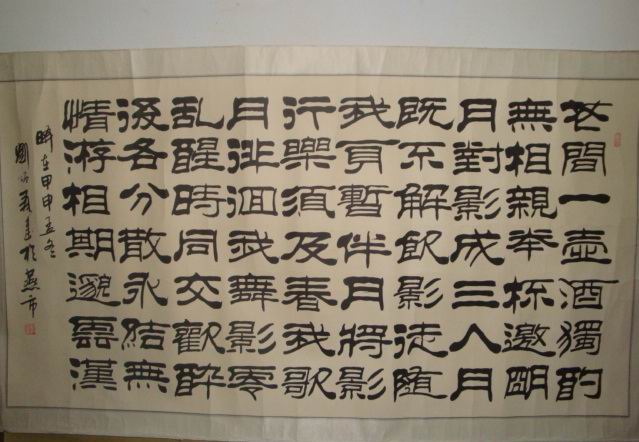 花間一壺酒獨酌
無相親举杯邀明
月對影成三人月
既不解飲影徒随
我身暫伴月將影
行樂須及春我歌
月徘徊我舞影零
乱醒時同交歡醉
後各分散永結無
情游相期邈雲漢
時在甲申孟冬
劉 書於燕市